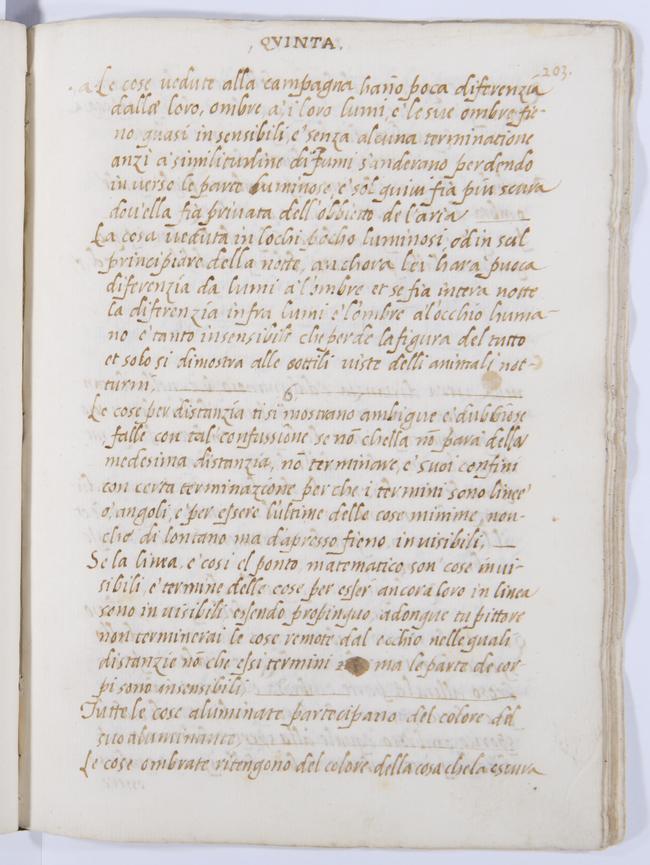 , QVINTA .
203.
a Le cose uedute alla campagna hano poca diferenzia
dalla loro, ombre, a, i loro lumi, e le sue ombre fie-
no, quasi insensibili, e senza alcuna terminatione
anzi a similitudine di fumi s'anderano perdendo
in uerso le parte luminose, e sol quiui fia piu scura
dou'ella fia priuata dell'obbietto de l'aria
La cosa ueduta in lochi pocho luminosi, od in sul
principidre della notte, anchora lei hara puoca
diferenzia da lumi a l'ombre et se fia intera notte
la diferenzia infra lumi e l'ombre al'occhio huma-
no e tanto insensibile che perde la figura del tutto
et solo si dimostra alle sottili uiste delli animali not-
turni,
Le cose per distanzia ti si mostrano ambigue e dubbiose
falle con tal' confussione se nõ chella nõ para della
medesima distanzia, nõ terminare, e suoi confini
con certa terminazione perche i termini sono linee
o, angoli, e per essere l'ultime delle cose minime, non-
che di lontano ma d'apresso fieno, inuisibili, —
Se la linea, e cosi el ponto, matematico son' cose inui-
sibili, e termine delle cose per esser' ancora loro in linea
sono inuisibili essendo propinguo, adonque tu pittore
non terminerai le cose remote dal occhio nelle quali
distanzie nõ che essi termini ma le parte de cor-
pi sono insensibili
Tutte le cose aluminate partecipano del colore del
suo aluminante
Le cose ombrate ritengono del colore della cosa che la oscura